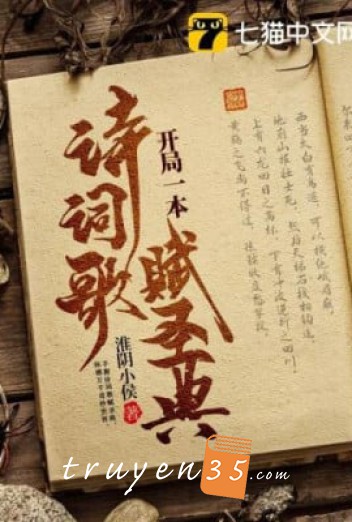 七猫中文网
开局一本
诗词歌
赋圣典
淮阴小侯
著
西当太白有鸟道，可以横绝峨眉巅。
地崩山摧壮士死，然后天梯石栈相钩连。
上有六龙回日之高标，下有冲波逆折之回川。
黄鹤之飞尚不得过，猿猱欲度愁攀援。
truyen35.com